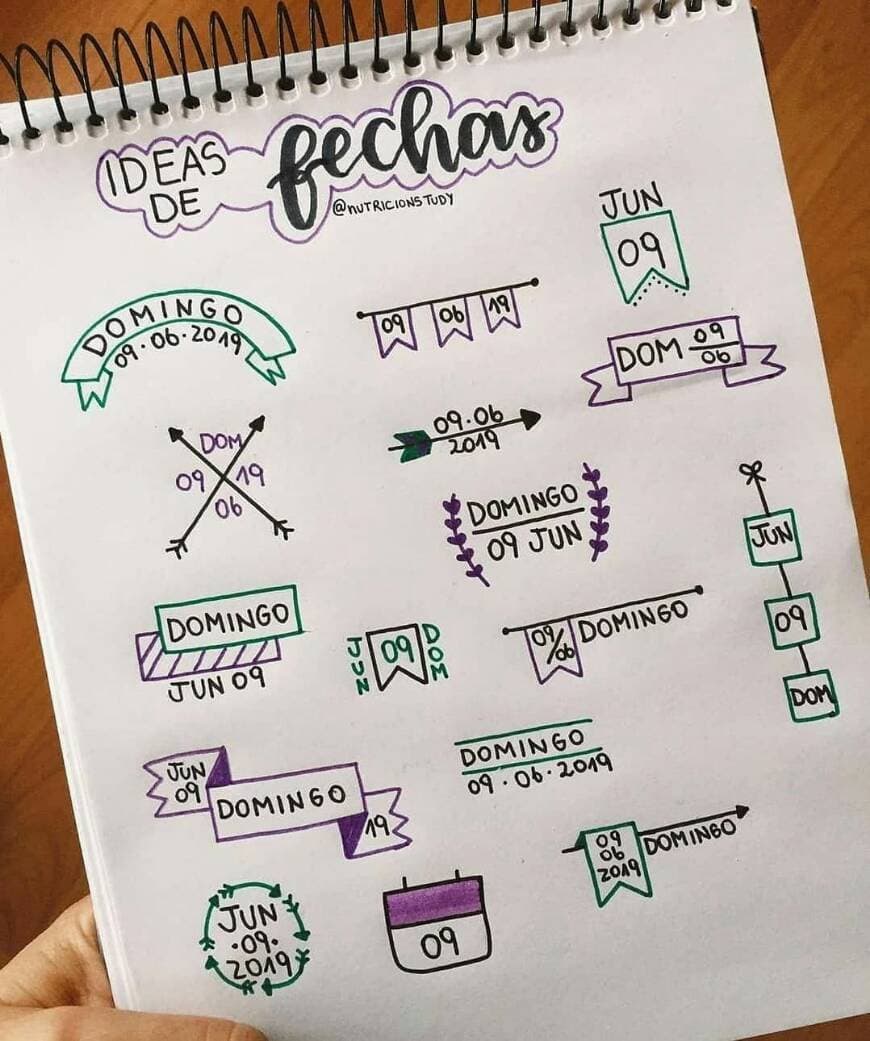 IDEAS
DE
fechas
@NUTRICIONSTUDY
JUN
09
DOMINGO
09·06·2019
09 06 19
DOM 09
06
DOM
09 19
06
09·06
2019
DOMINGO
09 JUN
JUN
09
DOM
DOMINGO
JUN 09
JUN 09 DOM
09/06 DOMINGO
JUN
09
DOMINGO
19
DOMINGO
09·06·2019
09
06
2019
DOMINGO
JUN
·09·
2019
09